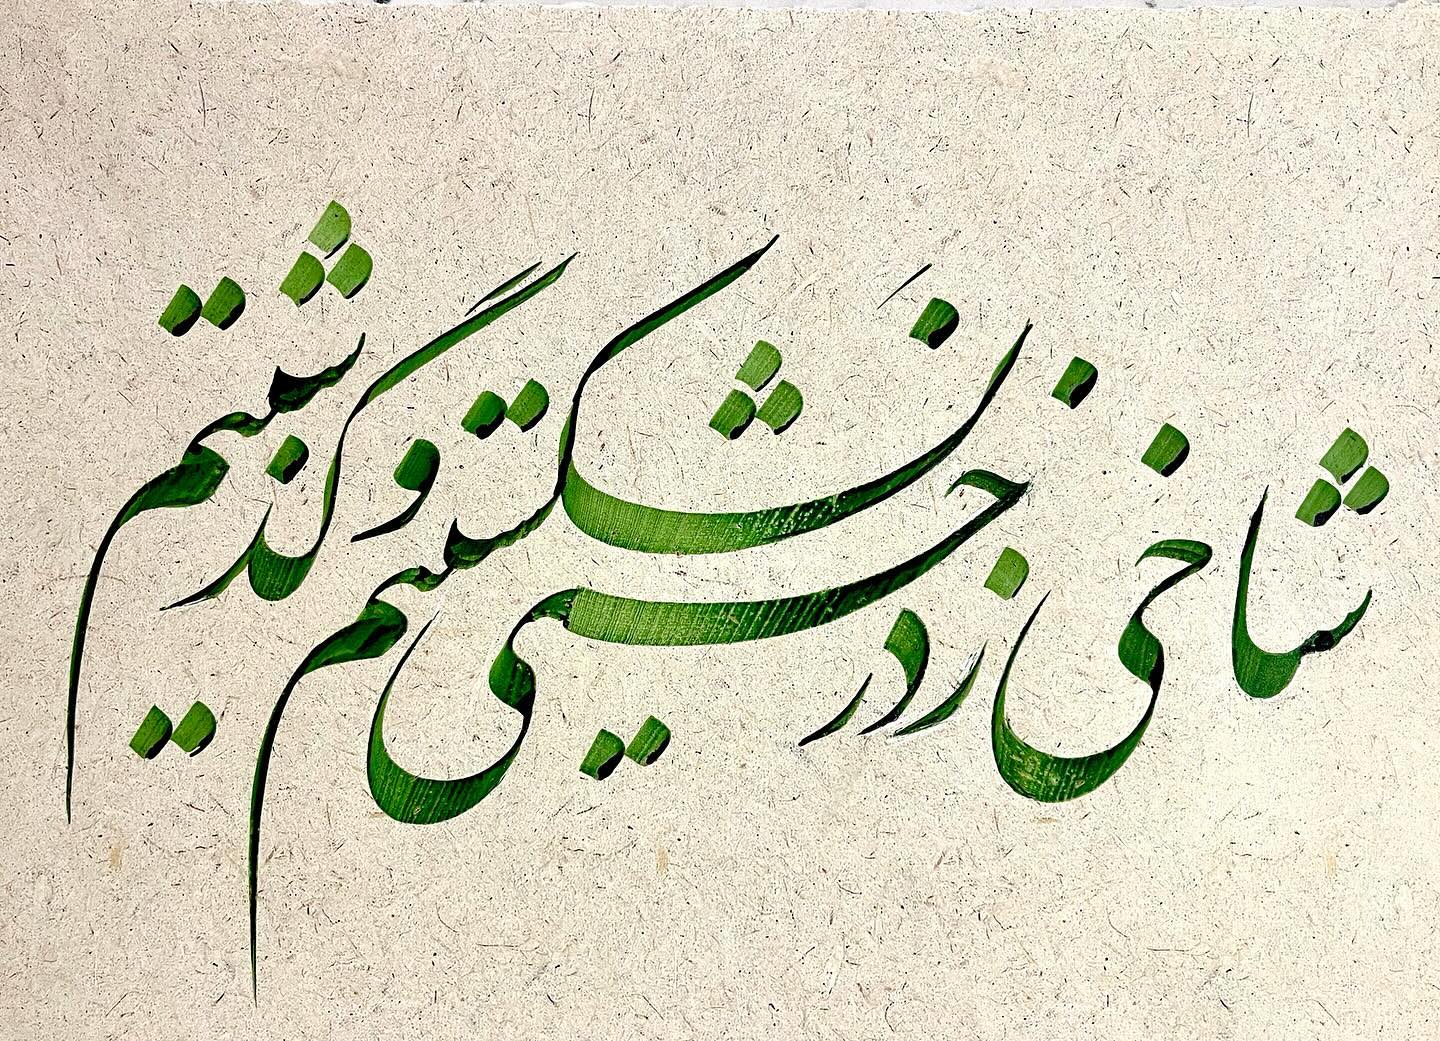 شاخی ز درختی نشکستیم و گذشتیم